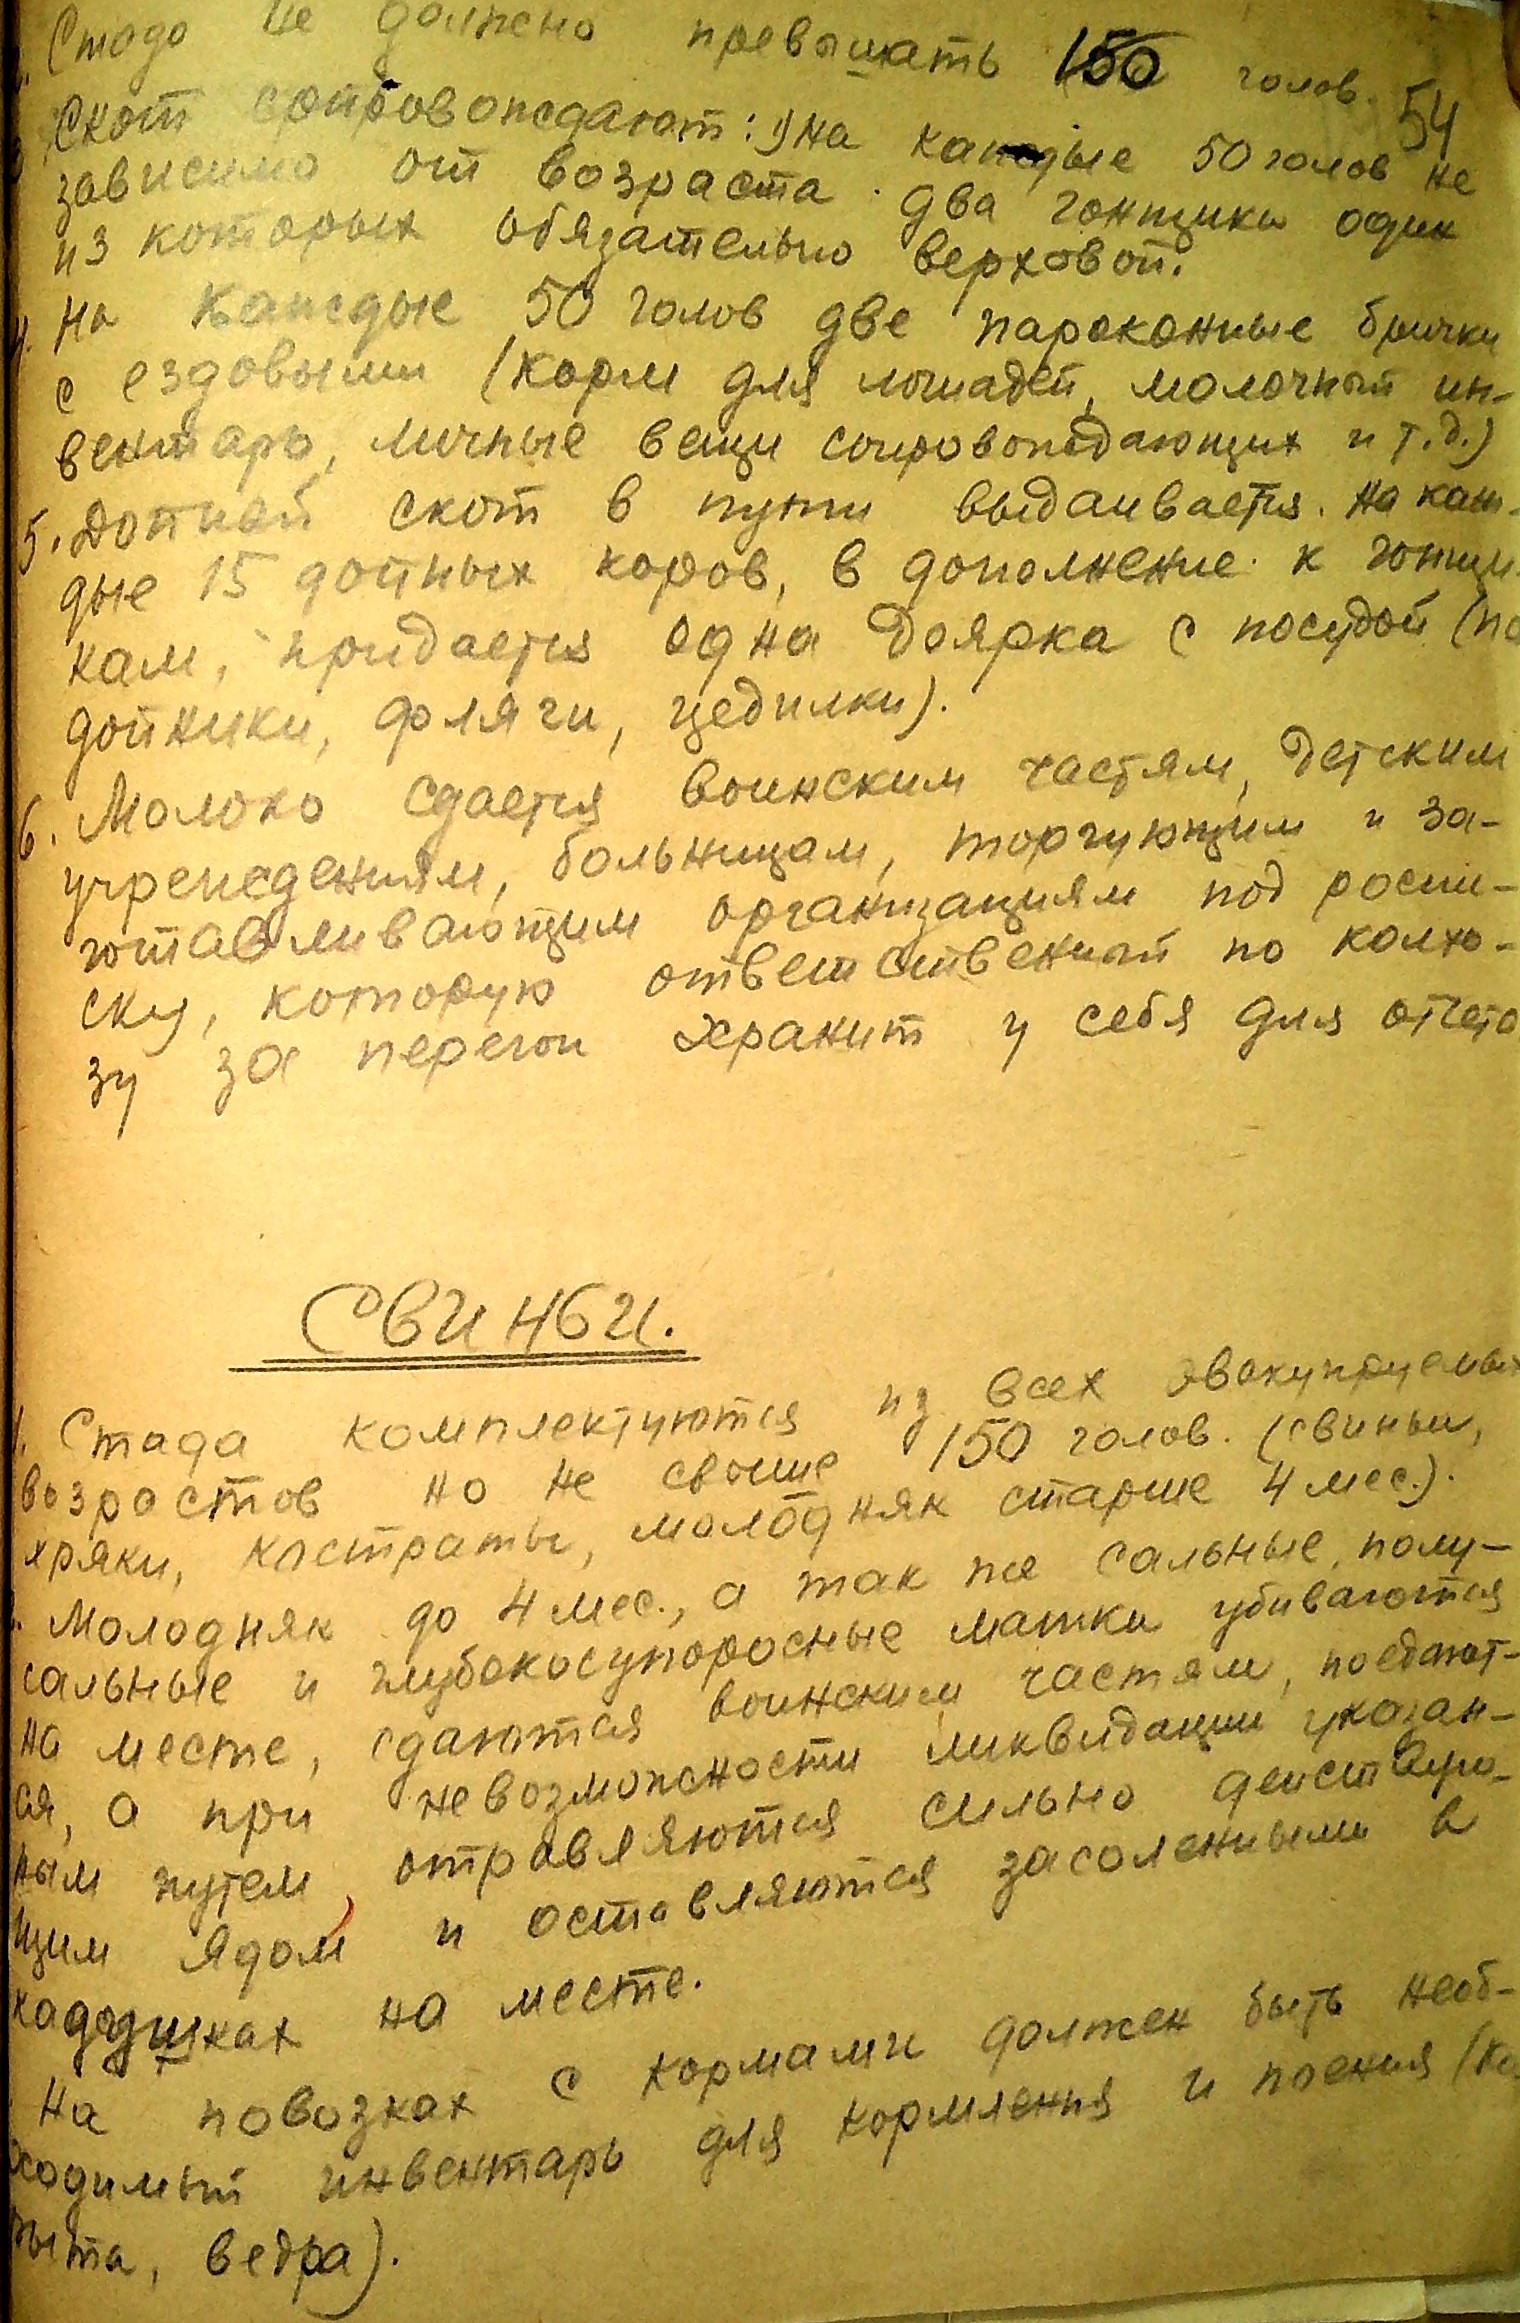 Стадо не должно превышать 150 голов.
54
Скот сопровождают: 1) На каждые 50 голов не
зависимо от возраста два гонщика один
из которых обязательно верховой.
4. На каждые 50 голов две пароконные брички
с ездовыми (корм для лошадей, молочный ин-
вентарь, личные вещи сопровождающих и т.д.)
5. Дойный скот в пути выдаивается. На каж-
дые 15 дойных коров, в дополнение к гонщи-
кам, придается одна доярка с посудой (по
дойники, фляги, цедилки).
6. Молоко сдается воинским частям, детским
учреждениям, больницам, торгующим и за-
готавливающим организациям под распи-
ску, которую ответственный по колхо-
зу за перегон хранит у себя для отчета
СВИНЬИ.
1. Стада комплектуются из всех эвакуируемых
возрастов но не свыше 150 голов. (свиньи,
хряки, кастраты, молодняк старше 4 мес.).
Молодняк до 4 мес., а так же сальные, полу-
сальные и глубокосупоросные матки убиваются
на месте, сдаются воинским частям, поедают-
ся, а при невозможности ликвидации указан-
ным путем, отравляются сильно действую-
щим ядом и оставляются засоленными в
кадушках на месте.
На повозках с кормами должен быть необ-
ходимый инвентарь для кормления и поения (ко
рыта, ведра).